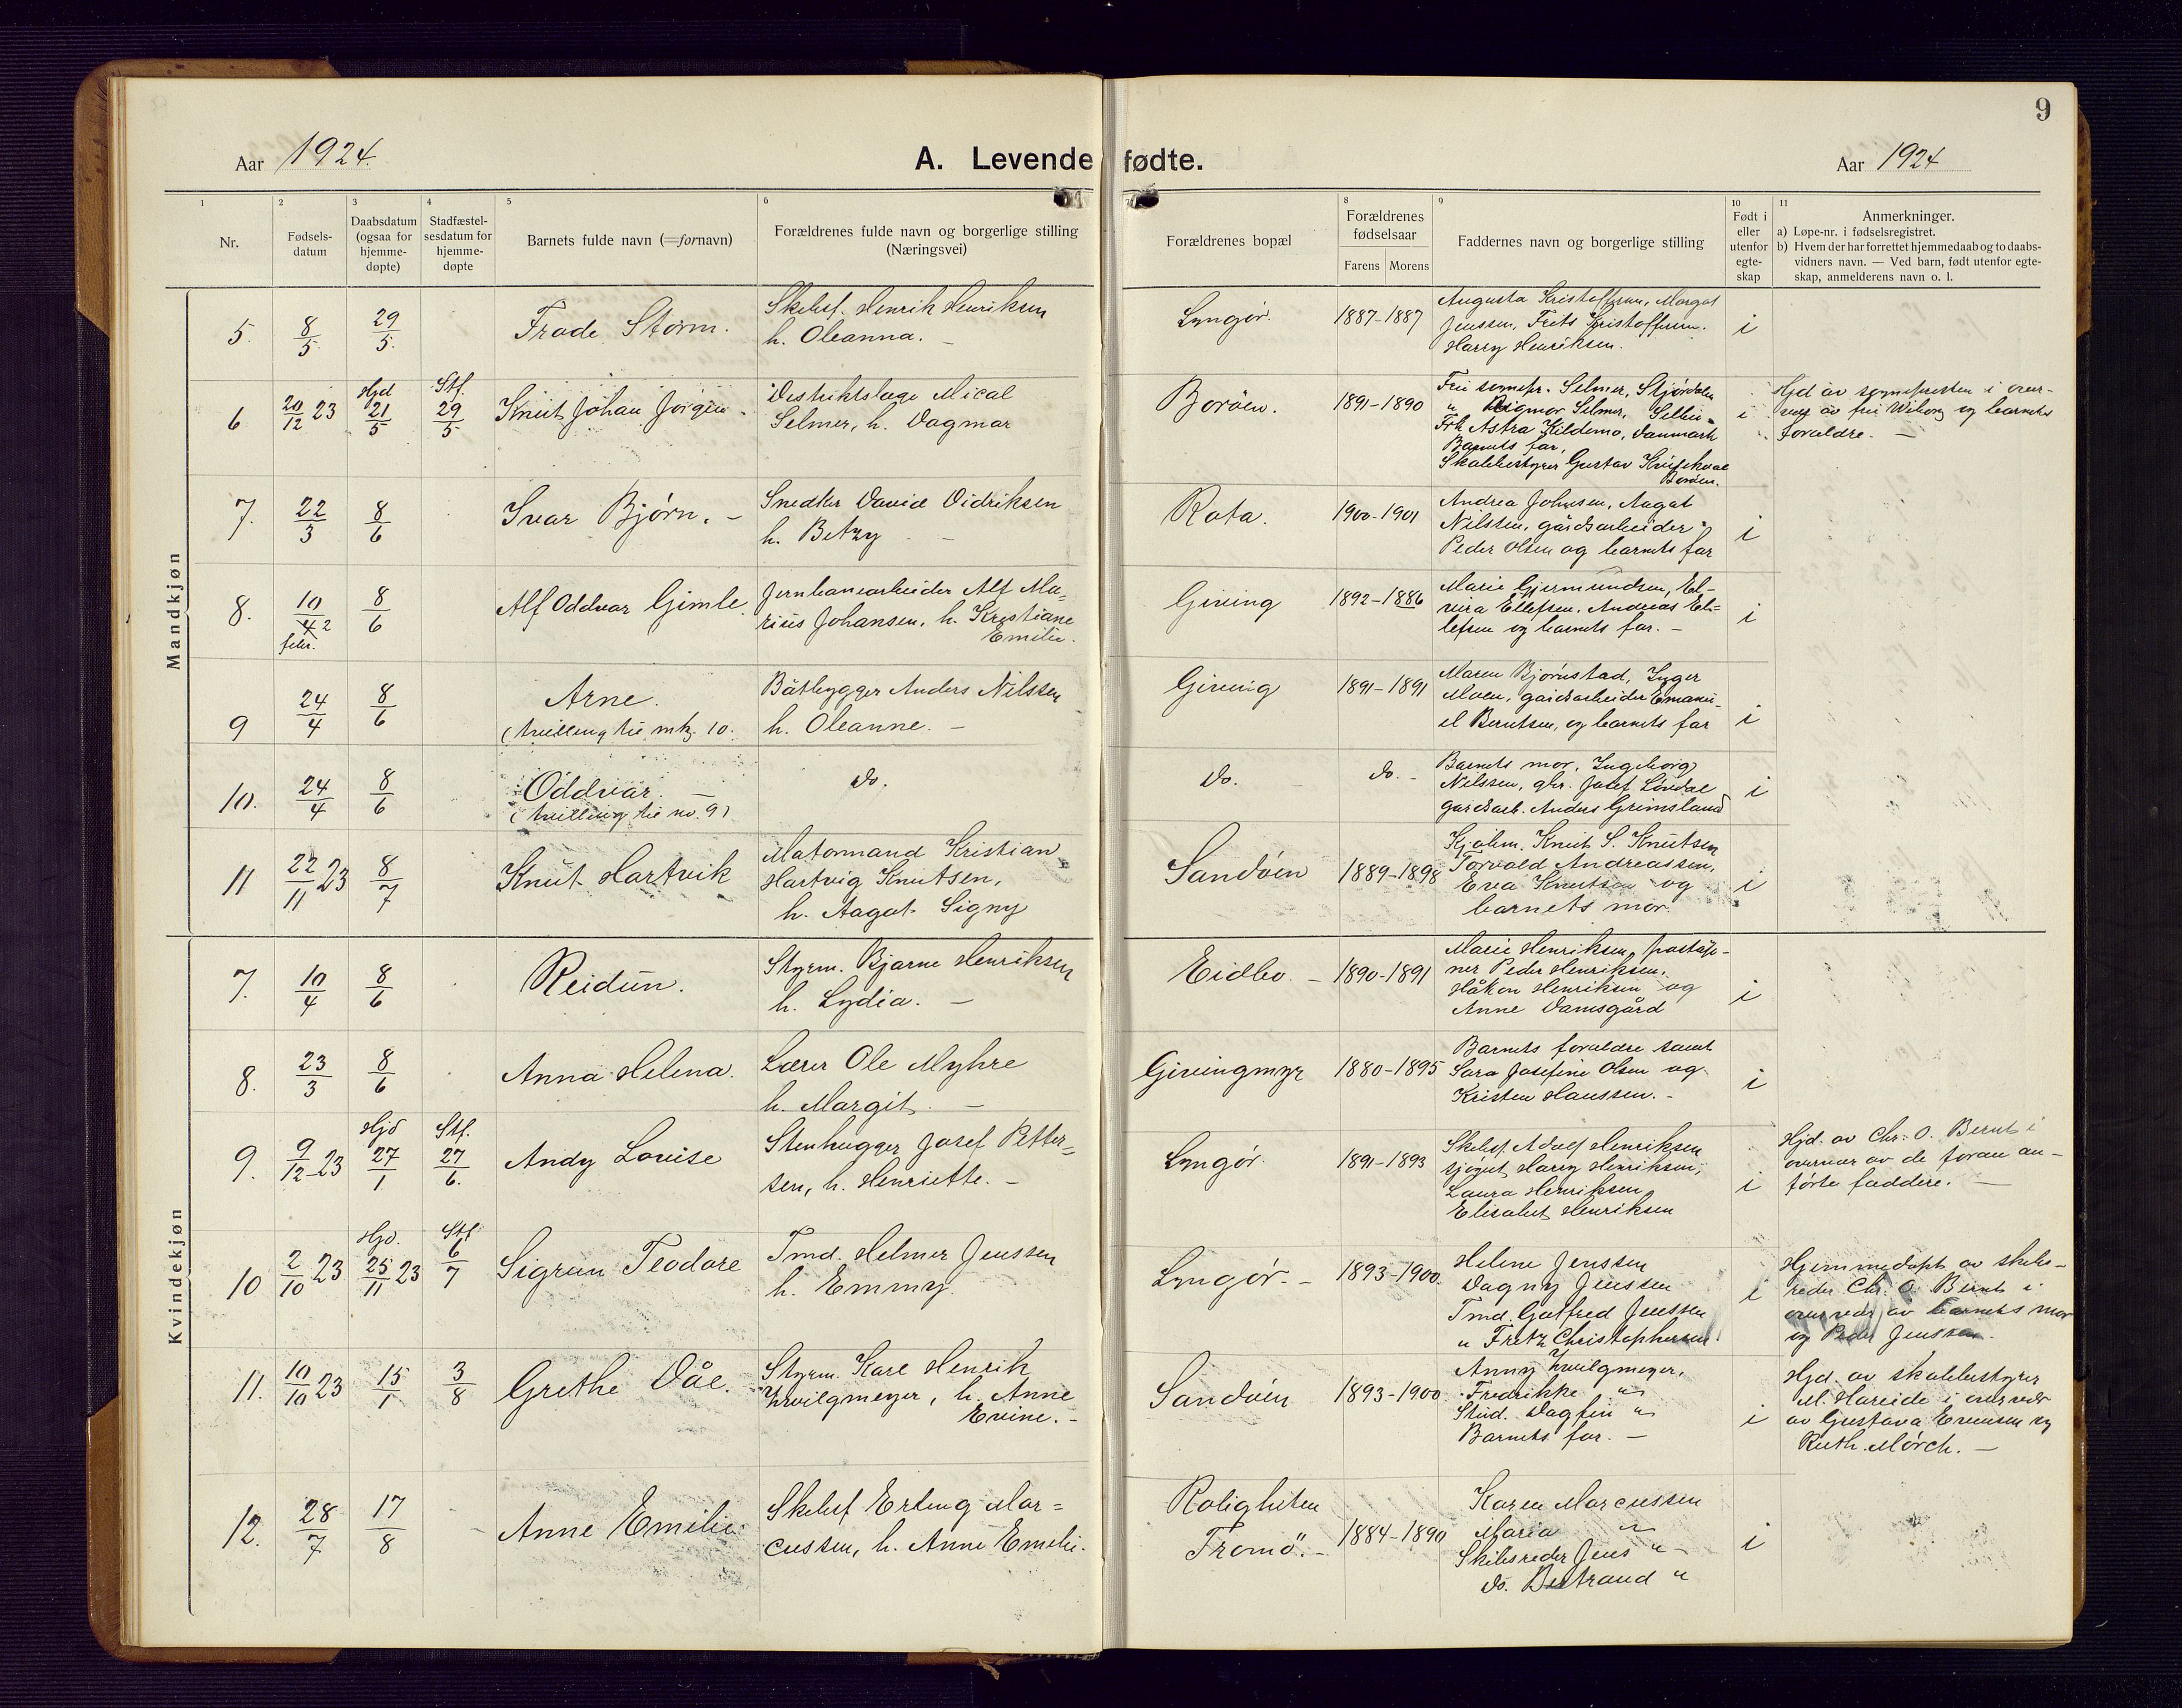 9
Aar 1924.
A. Levende fødte.
Aar 1924
1 2 3 4 5 6 8 9 10 11
Nr.
Fødsels-
datum
Daabsdatum
(ogsaa for
hjemme-
døpte)
Stadfæstel-
sesdatum for
hjemme-
døpte
Barnets fulde navn (=fornavn)
Forældrenes fulde navn og borgerlige stilling
(Næringsvei)
Forældrenes bopæl
Forældrenes
fødselsaar
Farens Morens
Faddernes navn og borgerlige stilling
Født i
eller
utenfor
egte-
skap
Anmerkninger.
a) Løpe-nr. i fødselsregistret.
b) Hvem der har forrettet hjemmedaab og to daabs-
vidners navn. — Ved barn, født utenfor egte-
skap, anmelderens navn o. l.
Mandkjøn
5. 8/5 29/5. Frode Storm.
Skibsf. Henrik Henriksen
h. Oleanna. –
Lyngör. 1887-1887
Augusta Kristoffersen, Margot
Jenssen, Frits Kristoffersen.
Harry Henriksen.
i
6 20/12 23 Hjd 21/5 Stf. 29/5 Knut Johan Jörgen –
Destriktslæge Mical
Selmer, h. Dagmar
Boröen. 1891-1890
Fru sognepr. Selmer, Stjørdalen
" Digmor Selmer,
Frk Astra Kildemo, Danmark
Barnets far,
Skolebestyrer Gustav
Boröen.
i
Hjd av sognepresten i over-
vær av fru Wiborg og barnets
foreldre. –
7. 22/3 8/6 Ivar Björn. –
Snedker David Didriksen
h. Betzy –
Rota. 1900-1901
Andrea Johnsen, Aagot
Nilssen, gårdsarbeider
Peder Olsen og barnets far
i
8. 10/2 febr. 8/6 Alf Oddvar Gimle
Jernbanearbeider Alf Ma-
rius Johansen, h. Kristiane
Emilie.
Giving 1892-1886
Marie Gjermundsen, El-
vira Ellefsen, Andreas El-
lefsen og barnets far. –
i
9 24/4 8/6 Arne.
(tvilling til mk. 10.
Båtbygger Anders Nilssen
h. Oleanne. –
Giving 1891-1891
Maren Bjørnstad, Inger
Moen, gårdsarbeider Emanu-
el Berntsen, og barnets far
i
10. 24/4 8/6 Oddvar. –
(tvilling til no. 9)
do.
do. do. –
Barnets mor, Ingeborg
Nilssen, gbr. Josef Lövdal
gardsarb. Anders Grimsland
i
11 22/11 23 8/7 Knut Hartvik
Matormand Kristian
Hartvig Knutsen,
h. Aagot Signy
Sandöen 1889-1898
Kjölem. Knut S. Knutsen
Torvald Andreassen,
Eva Knutsen og
barnets mor
i
Kvindekjøn
7. 10/4 8/6 Reidun.
Styrm. Bjarne Henriksen
h. Lydia. –
Eidbo. – 1890-1891
Marie Henriksen, poståp-
ner Peder Henriksen.
Håkon Henriksen og
Anne Damsgård
i
8. 23/3 8/6 Anna Helena.
Lærer Ole Myhre
h. Margit. –
Givingmyr 1880-1895
Barnets foreldre samt
Sara Josefine Olsen og
Kristen Hanssen. –
i
9. 9/12 23 Hjd 27/1 Stf. 27/6. Andy Lovise
Stenhugger Josef Petter-
sen, h. Henriette. –
Lyngör. 1891-1893
Skibsf. Adolf Henriksen
sjøgut Harry Henriksen,
Laura Henriksen
Elisabet Henriksen
i
Hjd. av Chr. O. Bernt i
overvær av de foran an-
förte faddere. –
10 2/10 23 Hjd. 25/11 23 Stf 6/7 Sigrun Teodore
Tmd. Helmer Jenssen
h. Emmy.
Lyngör. – 1893-1900.
Helene Jenssen
Dagny Jenssen
Tmd. Gotfred Jenssen
" Fritz Christophersen.
i
Hjemmedöpt av skibs-
reder Chr. O. Bernt i
overvær av barnets mor
og Peder Jenssen.
11. 10/10 23 15/1 3/8 Grethe Dåe.
Styrm. Kare Henrik
Zwilgmeyer, h. Anne
Evine. –
Sandöen 1893-1900
Anny Zwilgmeyer,
Fredrikke "
Stud. Dagfin "
Barnets far. –
i
Hjd. av skolebestyrer
M. Hareide i overvær
av Gustava Evensen og
Ruth Mörch. –
12. 28/7 17/8 – Anne Emilie
Skibsf Erling Mar-
cussen, h. Anne Emilie.
Roligheten
Tromö. – 1884-1890
Karen Marcussen
Maria "
Skibsreder Jens " –
do. Bertrand "
i